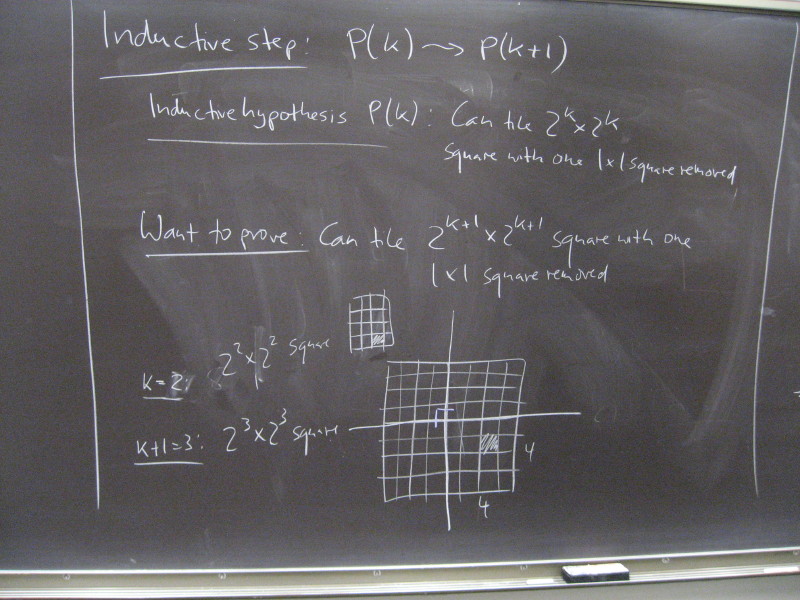 Inductive step: P(k) ⤳ P(k+1)
Inductive hypothesis P(k): Can tile 2^k × 2^k
square with one 1×1 square removed
Want to prove: Can tile 2^(k+1) × 2^(k+1) square with one
1×1 square removed
k=2: 2² × 2² square
k+1=3: 2³ × 2³ square
4
4